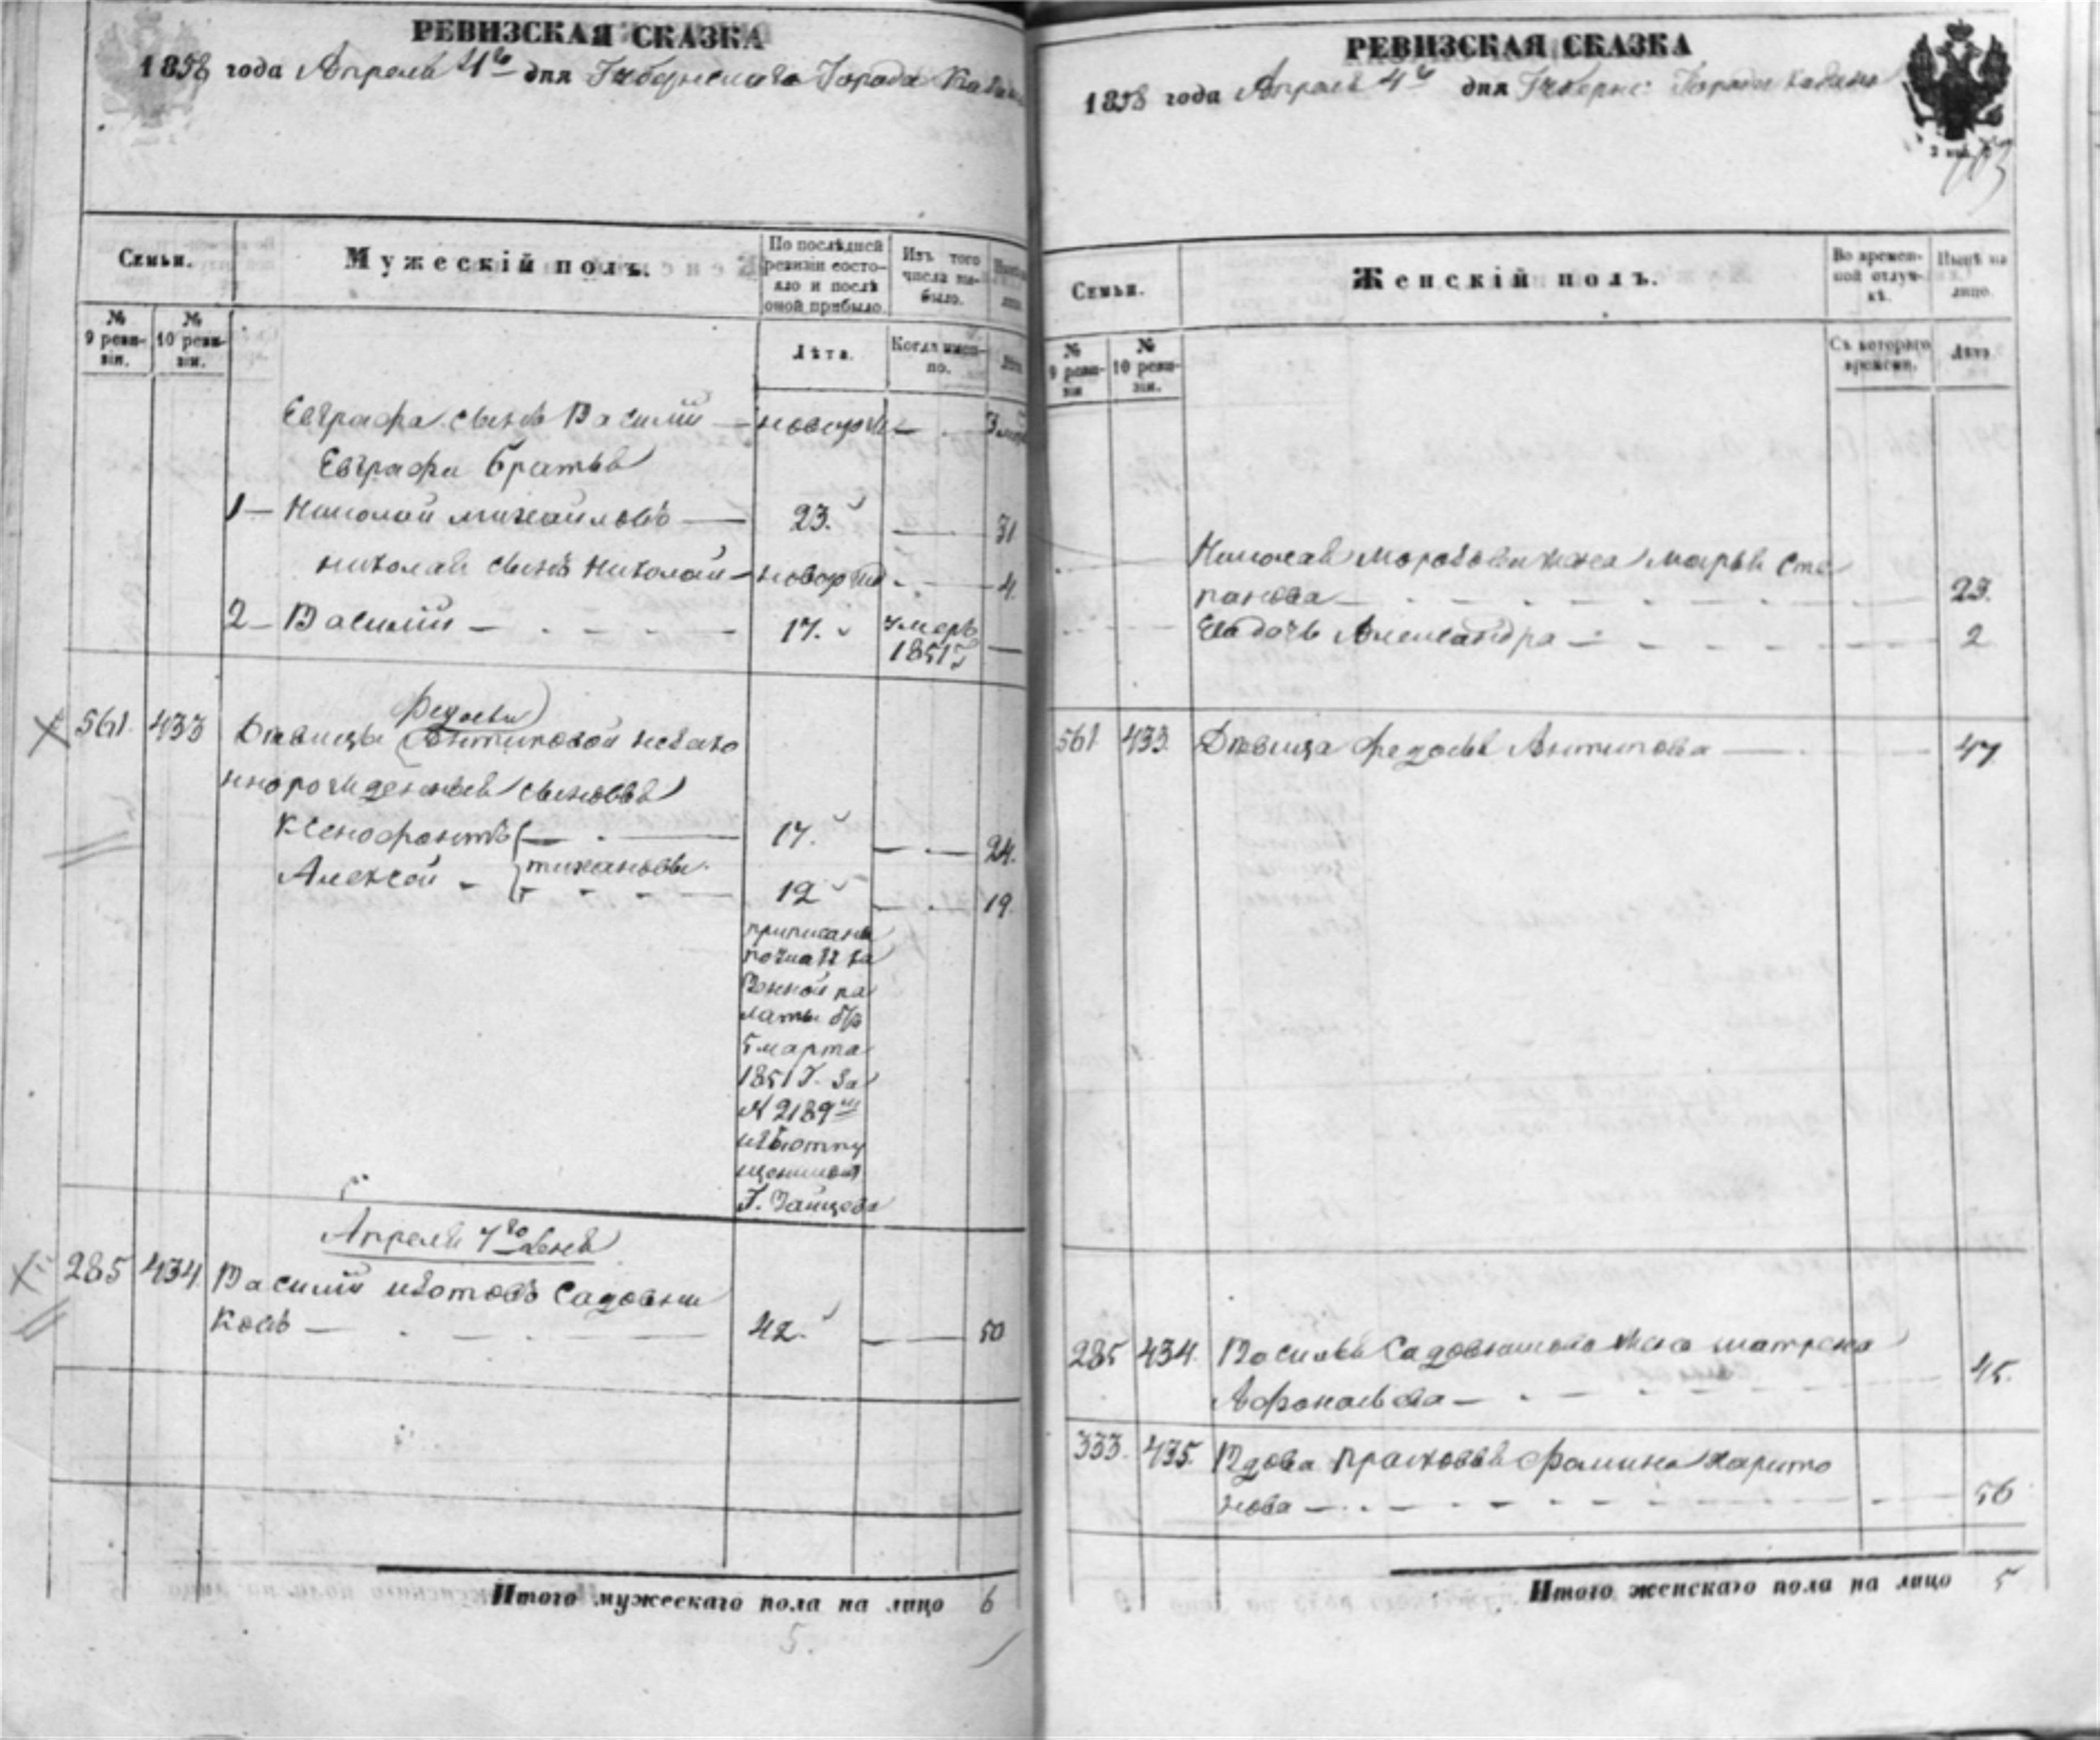 РЕВИЗСКАЯ СКАЗКА
1858 года Апреля 4го дня Губернскаго Города Казани
Семьи.
Мужескій полъ.
По послѣдней ревизіи состояло и послѣ оной прибыло.
Изъ того числа выбыло.
№ 9 ревизіи.
№ 10 ревизіи.
Лѣта.
Когда именно.
Лѣта
Евграфа сынъ Василій — новорож — 3
Евграфа братья
1 — Николай Михайловъ — 23. — 31
Николая сынъ Николай — новорож — 4.
2 — Василій — 17. умеръ 1851 г —
Федосьи
561. 433 Дѣвицы Антиповой незако
ннорожденные сыновья
Ксенофонтъ — 17. — 24.
Алексей — Тихановы. 12 — 19.
приписаны
по указу ка
зенной па
латы отъ
5 марта
1851 г. за
№ 2189
изъ отпу
щенныхъ
Г. Зайцева
Апреля 7го дня
285 434. Василій Изотовъ Садовни
ковъ — 42. — 50
Итого мужескаго пола на лицо 6
5.
РЕВИЗСКАЯ СКАЗКА
1858 года Апреля 4го дня Губернс: Города Казани
703
Семьи.
Женскій полъ.
Во временной отлучкѣ.
Нынѣ на лицо.
№ 9 ревизіи
№ 10 ревизіи.
Съ котораго времени.
Лѣта.
Николая Морозова жена Марья Сте
панова — 23.
Ея дочь Александра — 2
561. 433. Дѣвица Федосья Антипова — 47
285 434. Василья Садовникова жена Матрена
Афонасьева — 45.
333. 435. Вдова Прасковья Фомина Харито
нова — 56
Итого женскаго пола на лицо 5